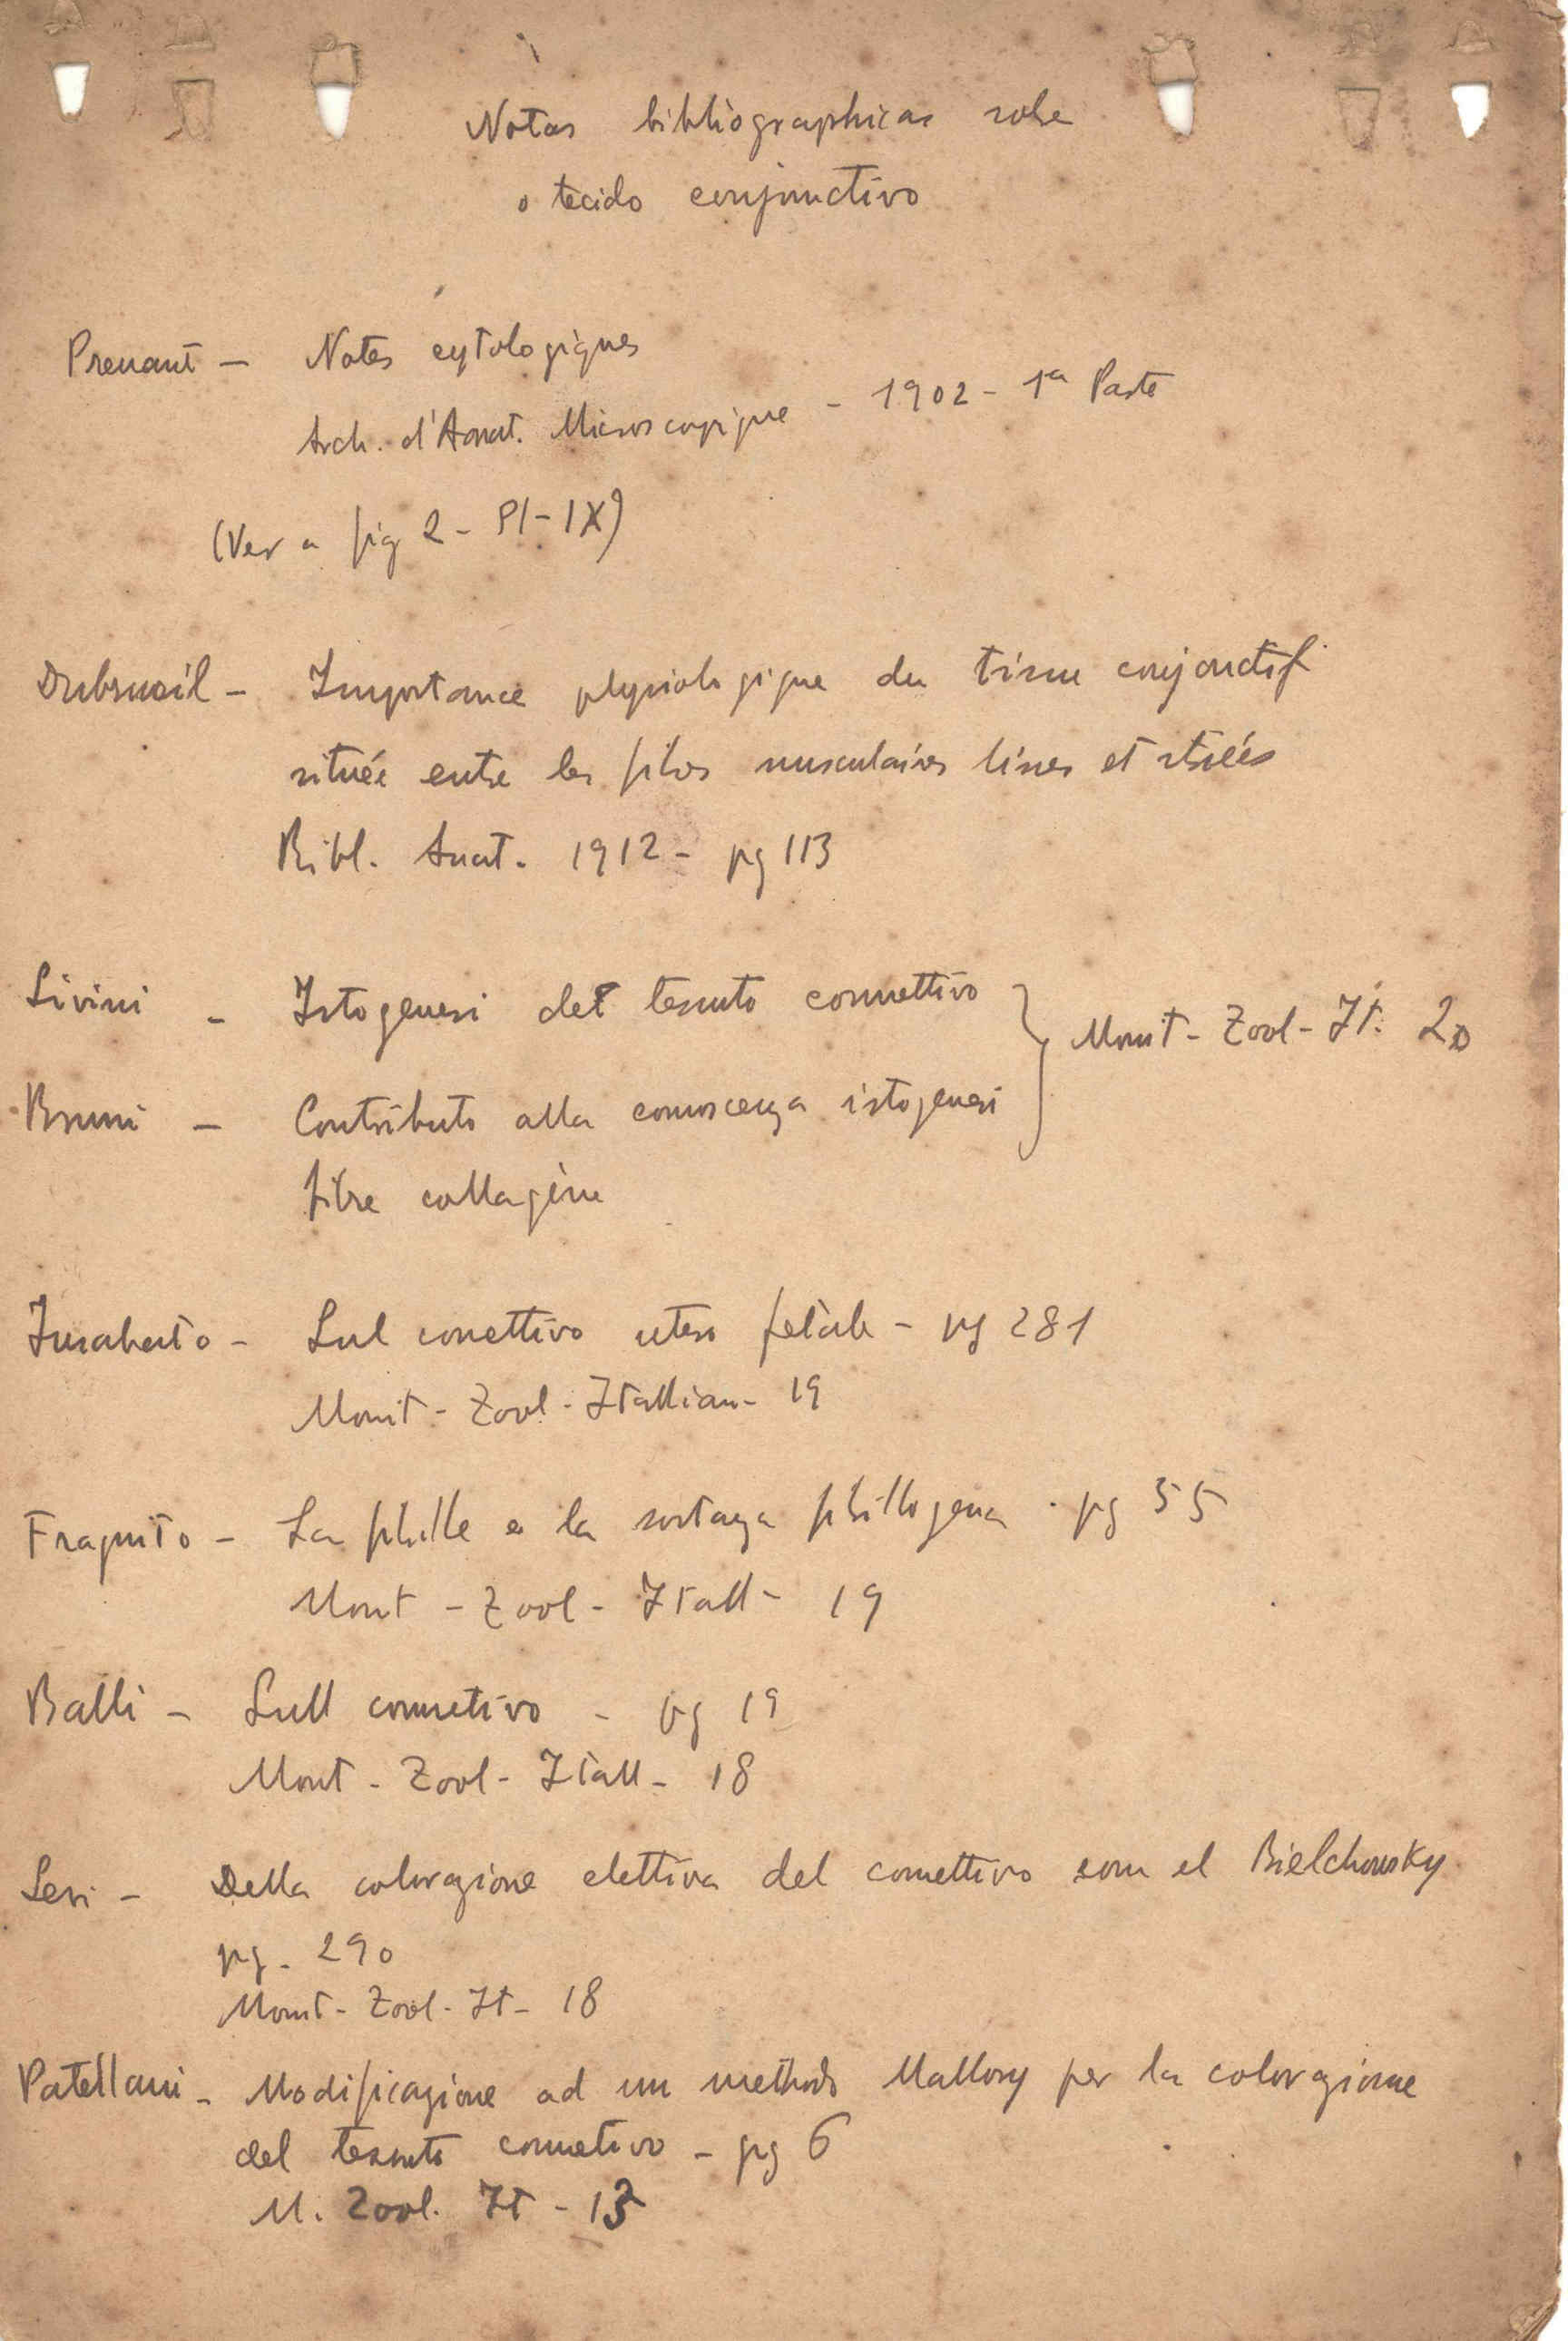 Notas bibliographicas sobre
o tecido conjunctivo
Prenant — Notes cytologiques
Arch. d'Anat. Microscopique - 1902 - 1ª Parte
(Ver a fig 2 - Pl - IX)
Dubreuil — Importance physiologique du tissu conjonctif
située entre les fibres musculaires lisses et striées
Bibl. Anat. 1912 - pg 113
Livini - Istogenesi del tessuto connettivo
Monit - Zool - It. 20
Bruni — Contributo alla conoscenza istogenesi
fibre collagène
- Sul conettivo utero fetale - pg 281
Monit - Zool - Itallian - 19
Fragnito - La fibrille e la sostanza fibrillogena . pg 55
Monit - Zool - Itall - 19
Balli - Sull connetivo - pg 19
Monit - Zool - Itall - 18
Levi - Della colorazione elettiva del conettivo com el Bielchowsky
pg. 290
Monit - Zool - It - 18
Patellani - Modificazione ad un methodo Mallory per la colorazione
del tessuto connetivo - pg 6
M. Zool. It -